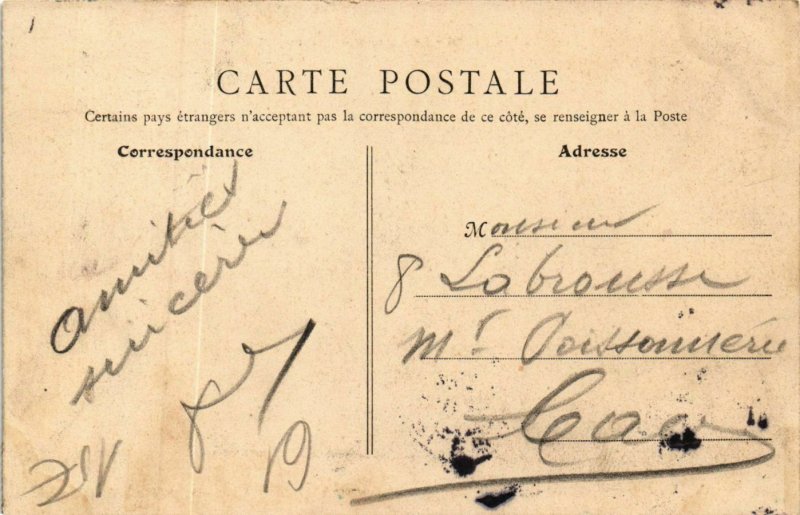 CARTE POSTALE
Certains pays étrangers n'acceptant pas la correspondance de ce côté, se renseigner à la Poste
Correspondance
Adresse
amitiés
sincères
19
Monsieur
8 Labrousse
Poissonnerie